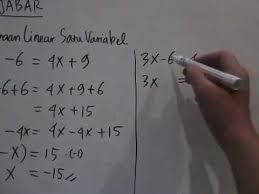 JABAR
aan Linear Satu Variabel
-6 = 4x + 9
6+6 = 4x + 9 + 6
= 4x + 15
-4x = 4x - 4x + 15
-x) = 15 (-)
x = -15 //
3x - 6
3x =